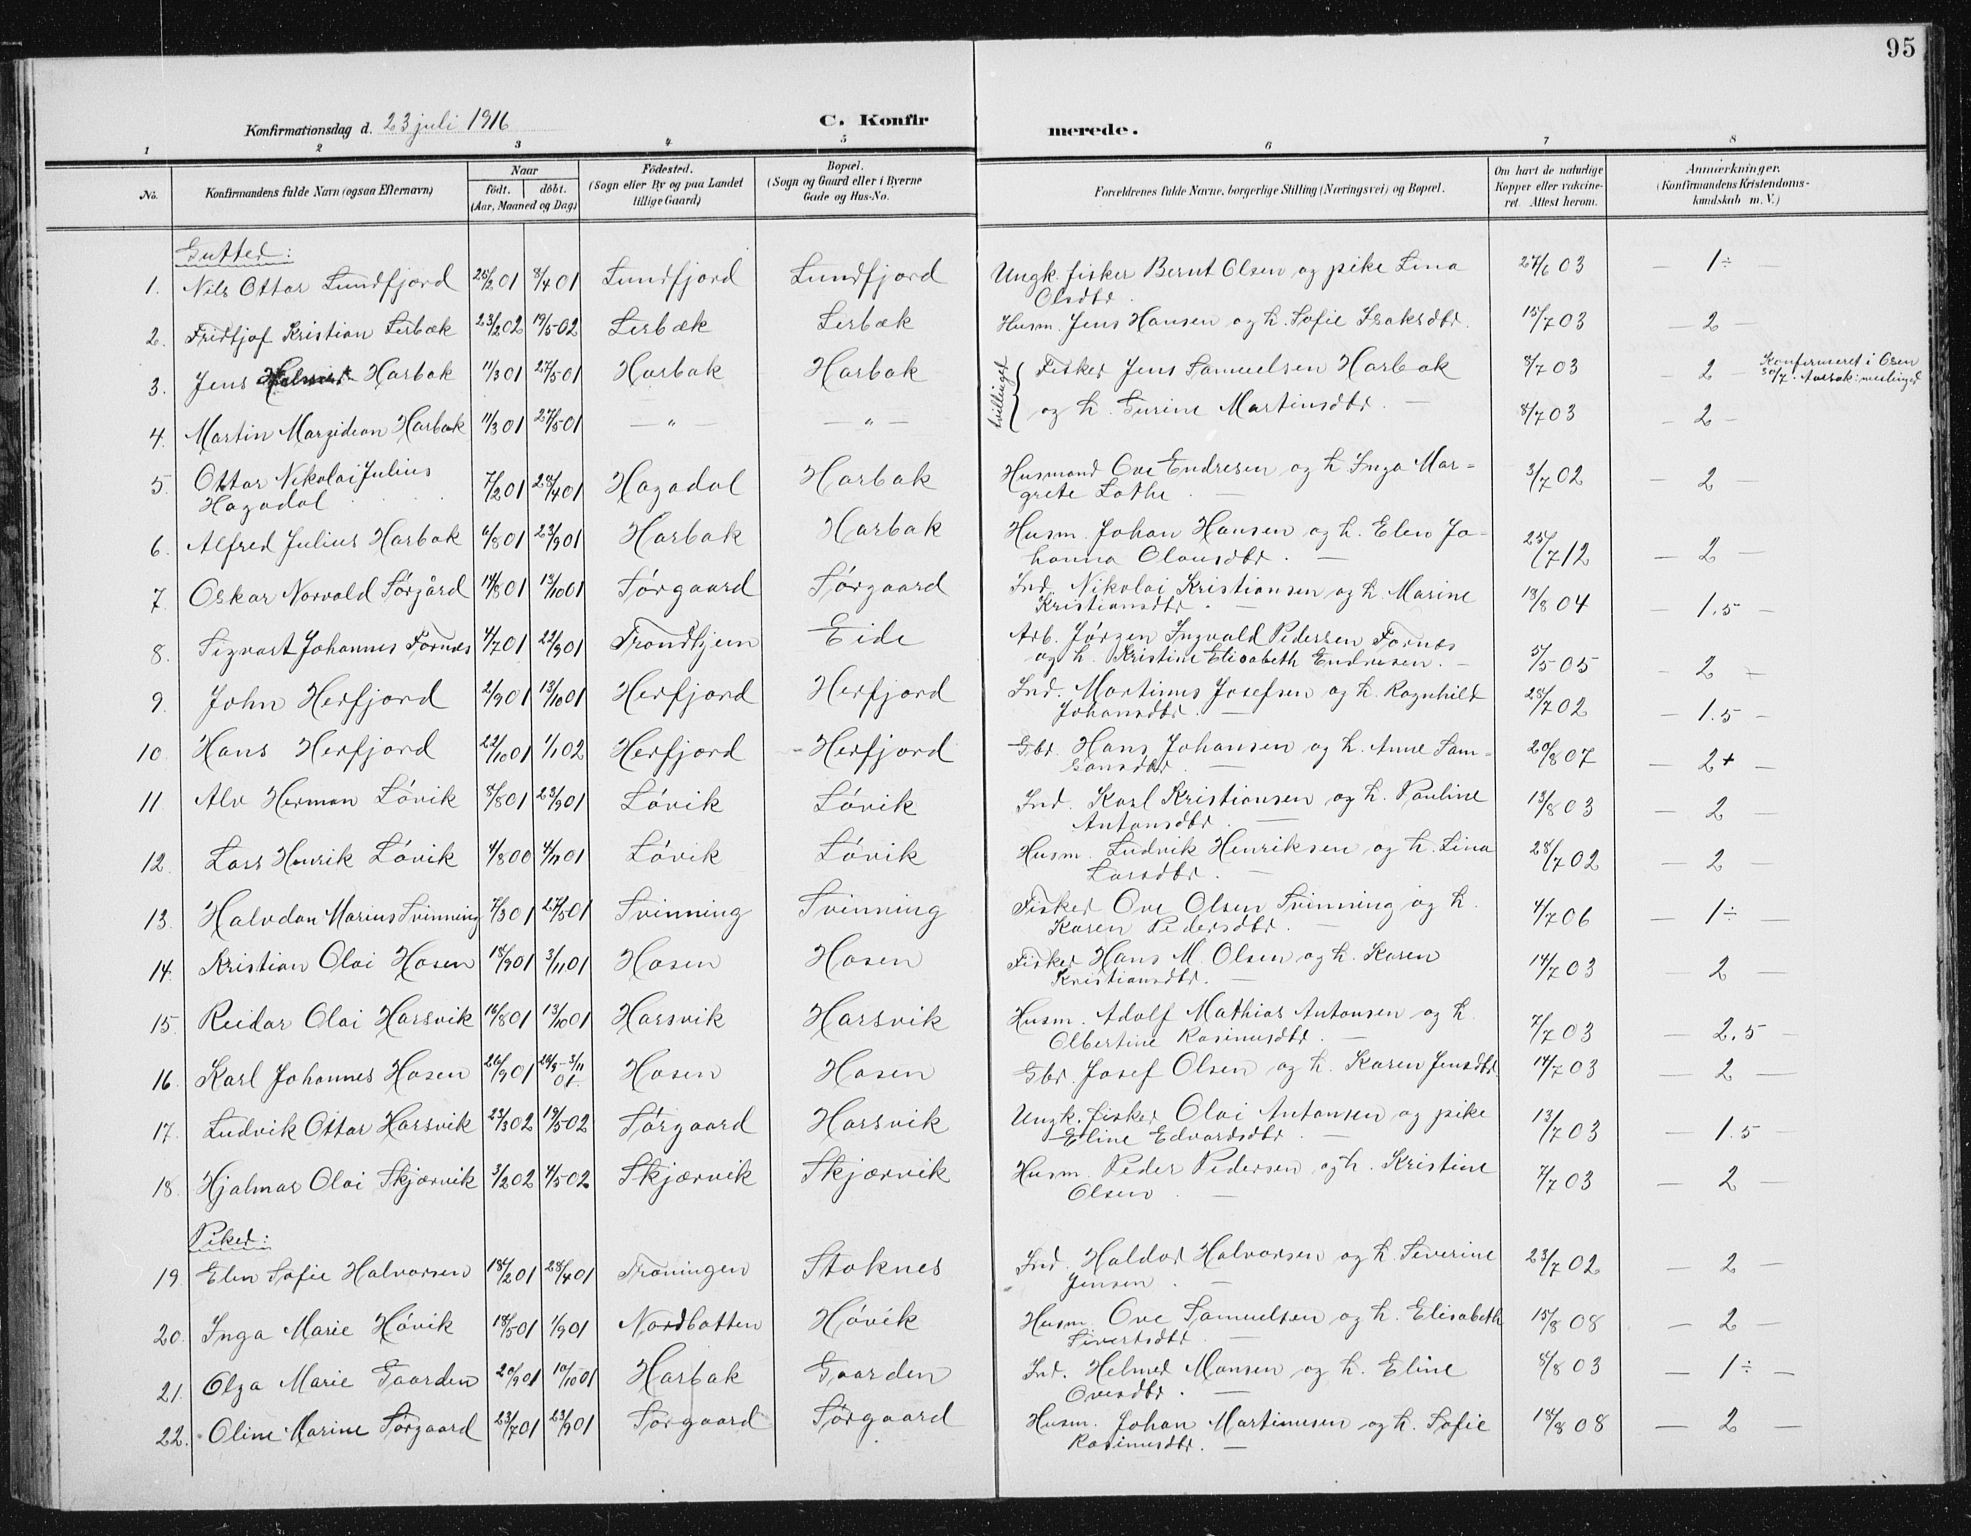 95
Konfirmationsdag d. 23 juli 1916
C. Konfirmerede.
1 2 3 4 5 6 7 8
No. Konfirmandens fulde Navn (ogsaa Efternavn) Naar födt. döbt. (Aar, Maaned og Dag) Födested. (Sogn eller By og paa Landet tillige Gaard) Bopæl. (Sogn og Gaard eller i Byerne Gade og Hus-No. Forældrenes fulde Navne, borgerlige Stilling (Næringsvei) og Bopæl. Om havt de naturlige Kopper eller vakcineret. Attest herom. Anmærkninger. (Konfirmandens Kristendomskundskab m. V.)
Gutter:
1. Nils Ottar Sundfjord 28/2 01 8/4 01 Sundfjord Sundfjord Ungk. fisker Bernt Olsen og pike Lina Olsdtr. 27/6 03 — 1÷ —
2. Fridtjof Kristian Lerbæk 23/2 02 19/5 02 Lerbæk Lerbæk Husm. Jens Hansen og h. Sofie Isaksdtr. 15/7 03 — 2 —
3. Jens Harbak 11/3 01 27/5 01 Harbak Harbak tvillinger Fisker Jens Samuelsen Harbak 8/7 03 — 2 — Konfirmeret i Osen 30/7.
4. Martin Margidion Harbak 11/3 01 27/5 01 — " — — " — og h. Gurine Martinsdtr. — 8/7 03 — 2 —
5. Ottar Nikolai Julius Hagadal 7/2 01 28/4 01 Hagadal Harbak Husmand Ove Endresen og h. Inga Margrete Lothe. — 3/7 02 — 2 —
6. Alfred Julius Harbak 6/8 01 23/9 01 Harbak Harbak Husm. Johan Hansen og h. Elen Johanna Olausdtr. — 25/7 12 — 2 —
7. Oskar Norvald Sørgård 14/8 01 13/10 01 Sørgaard Sørgaard Ind. Nikolai Kristiansen og h. Marine Kristiansdtr. — 18/8 04 — 1.5 —
8. Sigvart Johannes Fornes 4/7 01 22/9 01 Trondhjem Eide Arb. Jørgen Ingvald Pedersen Fornes og h. Kristine Elisabeth Endresen. — 5/5 05 — 2 —
9. John Herfjord 2/9 01 13/10 01 Herfjord Herfjord Ind. Martinus Josefsen og h. Ragnhild Johansdtr. — 28/7 02 — 1.5 —
10. Hans Herfjord 22/10 01 1/1 02 Herfjord Herfjord Gbr. Hans Johansen og h. Anne Samsonsdtr. — 20/8 07 — 2+ —
11. Alv Herman Løvik 8/8 01 23/9 01 Løvik Løvik Ind. Karl Kristiansen og h. Pauline Antonsdtr. — 13/8 03 — 2 —
12. Lars Henrik Løvik 4/8 00 4/4 01 Løvik Løvik Husm. Ludvik Henriksen og h. Lina Larsdtr. — 28/7 02 — 2 —
13. Halvdan Marius Svinning 7/3 01 27/5 01 Svinning Svinning Fisker Ove Olsen Svinning og h. Karen Pedersdtr. — 4/7 06 — 1÷ —
14. Kristian Olai Hasen 18/9 01 3/11 01 Hasen Hasen Fisker Hans M. Olsen og h. Karen Kristiansdtr. — 14/7 03 — 2 —
15. Reidar Olai Harsvik 16/8 01 13/10 01 Harsvik Harsvik Husm. Adolf Mathias Antonsen og h. Olbertine Rasinusdtr. — 7/7 03 — 2.5 —
16. Karl Johannes Hasen 26/9 01 28/9 - 3/11 01. Hasen Hasen Gbr. Josef Olsen og h. Karen Jensdtr. 14/7 03 — 2 —
17. Ludvik Ottar Harsvik 23/3 02 19/5 02 Sørgaard Harsvik Ungk. fisker Olai Antonsen og pike Eline Edvardsdtr. — 13/7 03 — 1.5 —
18. Hjalmar Olai Skjærvik 3/2 02 4/5 02 Skjærvik Skjærvik Husm. Peder Pedersen og h. Kristine Olsen. — 7/7 03 — 2 —
Piker:
19. Elen Sofie Halvorsen 18/2 01 28/4 01 Træningen Stoknes Ind. Haldor Halvorsen og h. Severine Jensen. — 23/7 02 — 2 —
20. Inga Marie Høvik 18/5 01 1/9 01 Nordbotten Høvik Husm. Ove Samuelsen og h. Elisabeth Sivertsdtr. — 15/8 08 — 2 —
21. Olga Marie Gaarden 20/9 01 10/10 01 Harbak Gaarden Ind. Helmer Monsen og h. Eline Ovesdtr. — 8/8 03 — 1÷ —
22. Oline Marine Sørgaard 23/7 01 23/9 01 Sørgaard Sørgaard Husm. Johan Martinusen og h. Sofie Rasinusdtr. — 18/8 08 — 2 —